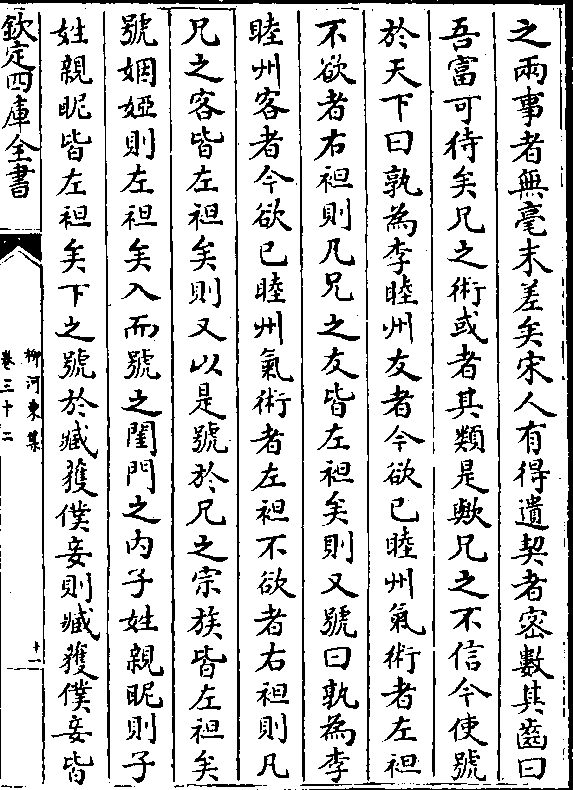 之兩事者無毫末差矣宋人有得遺契者密數其齒曰
吾富可待矣兄之術或者其類是歟兄之不信今使號
於天下曰孰為李睦州友者今欲已睦州氣術者左袒
不欲者右袒則凡兄之友皆左袒矣則又號曰孰為李
睦州客者今欲已睦州氣術者左袒不欲者右袒則凡
兄之客皆左袒矣則又以是號於兄之宗族皆左袒矣
號姻婭則左袒矣入而號之閨門之內子姓親昵則子
姓親昵皆左袒矣下之號於臧獲僕妾則臧獲僕妾皆
欽定四庫全書
柳河東集
卷三十二
十一